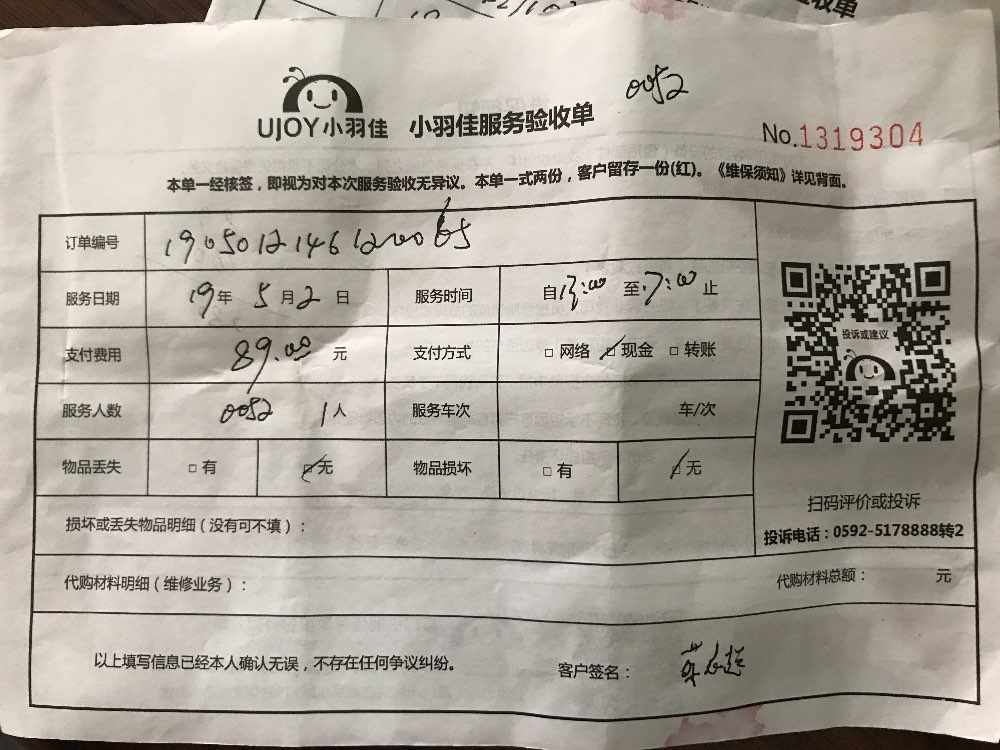 0052
UJOY小羽佳 小羽佳服务验收单
No.1319304
本单一经核签，即视为对本次服务验收无异议。本单一式两份，客户留存一份(红)。《维保须知》详见背面。
订单编号
服务日期 19年 5月2日 服务时间 自13:00 至17:00止
支付费用 89.00 元 支付方式 □ 网络 □ 现金 □ 转账
服务人数 0052 1人 服务车次 车/次
物品丢失 □ 有 □ 无 物品损坏 □ 有 □ 无
投诉或建议
扫码评价或投诉
投诉电话：0592-5178888转2
损坏或丢失物品明细（没有可不填）：
代购材料明细（维修业务）： 代购材料总额： 元
以上填写信息已经本人确认无误，不存在任何争议纠纷。 客户签名：